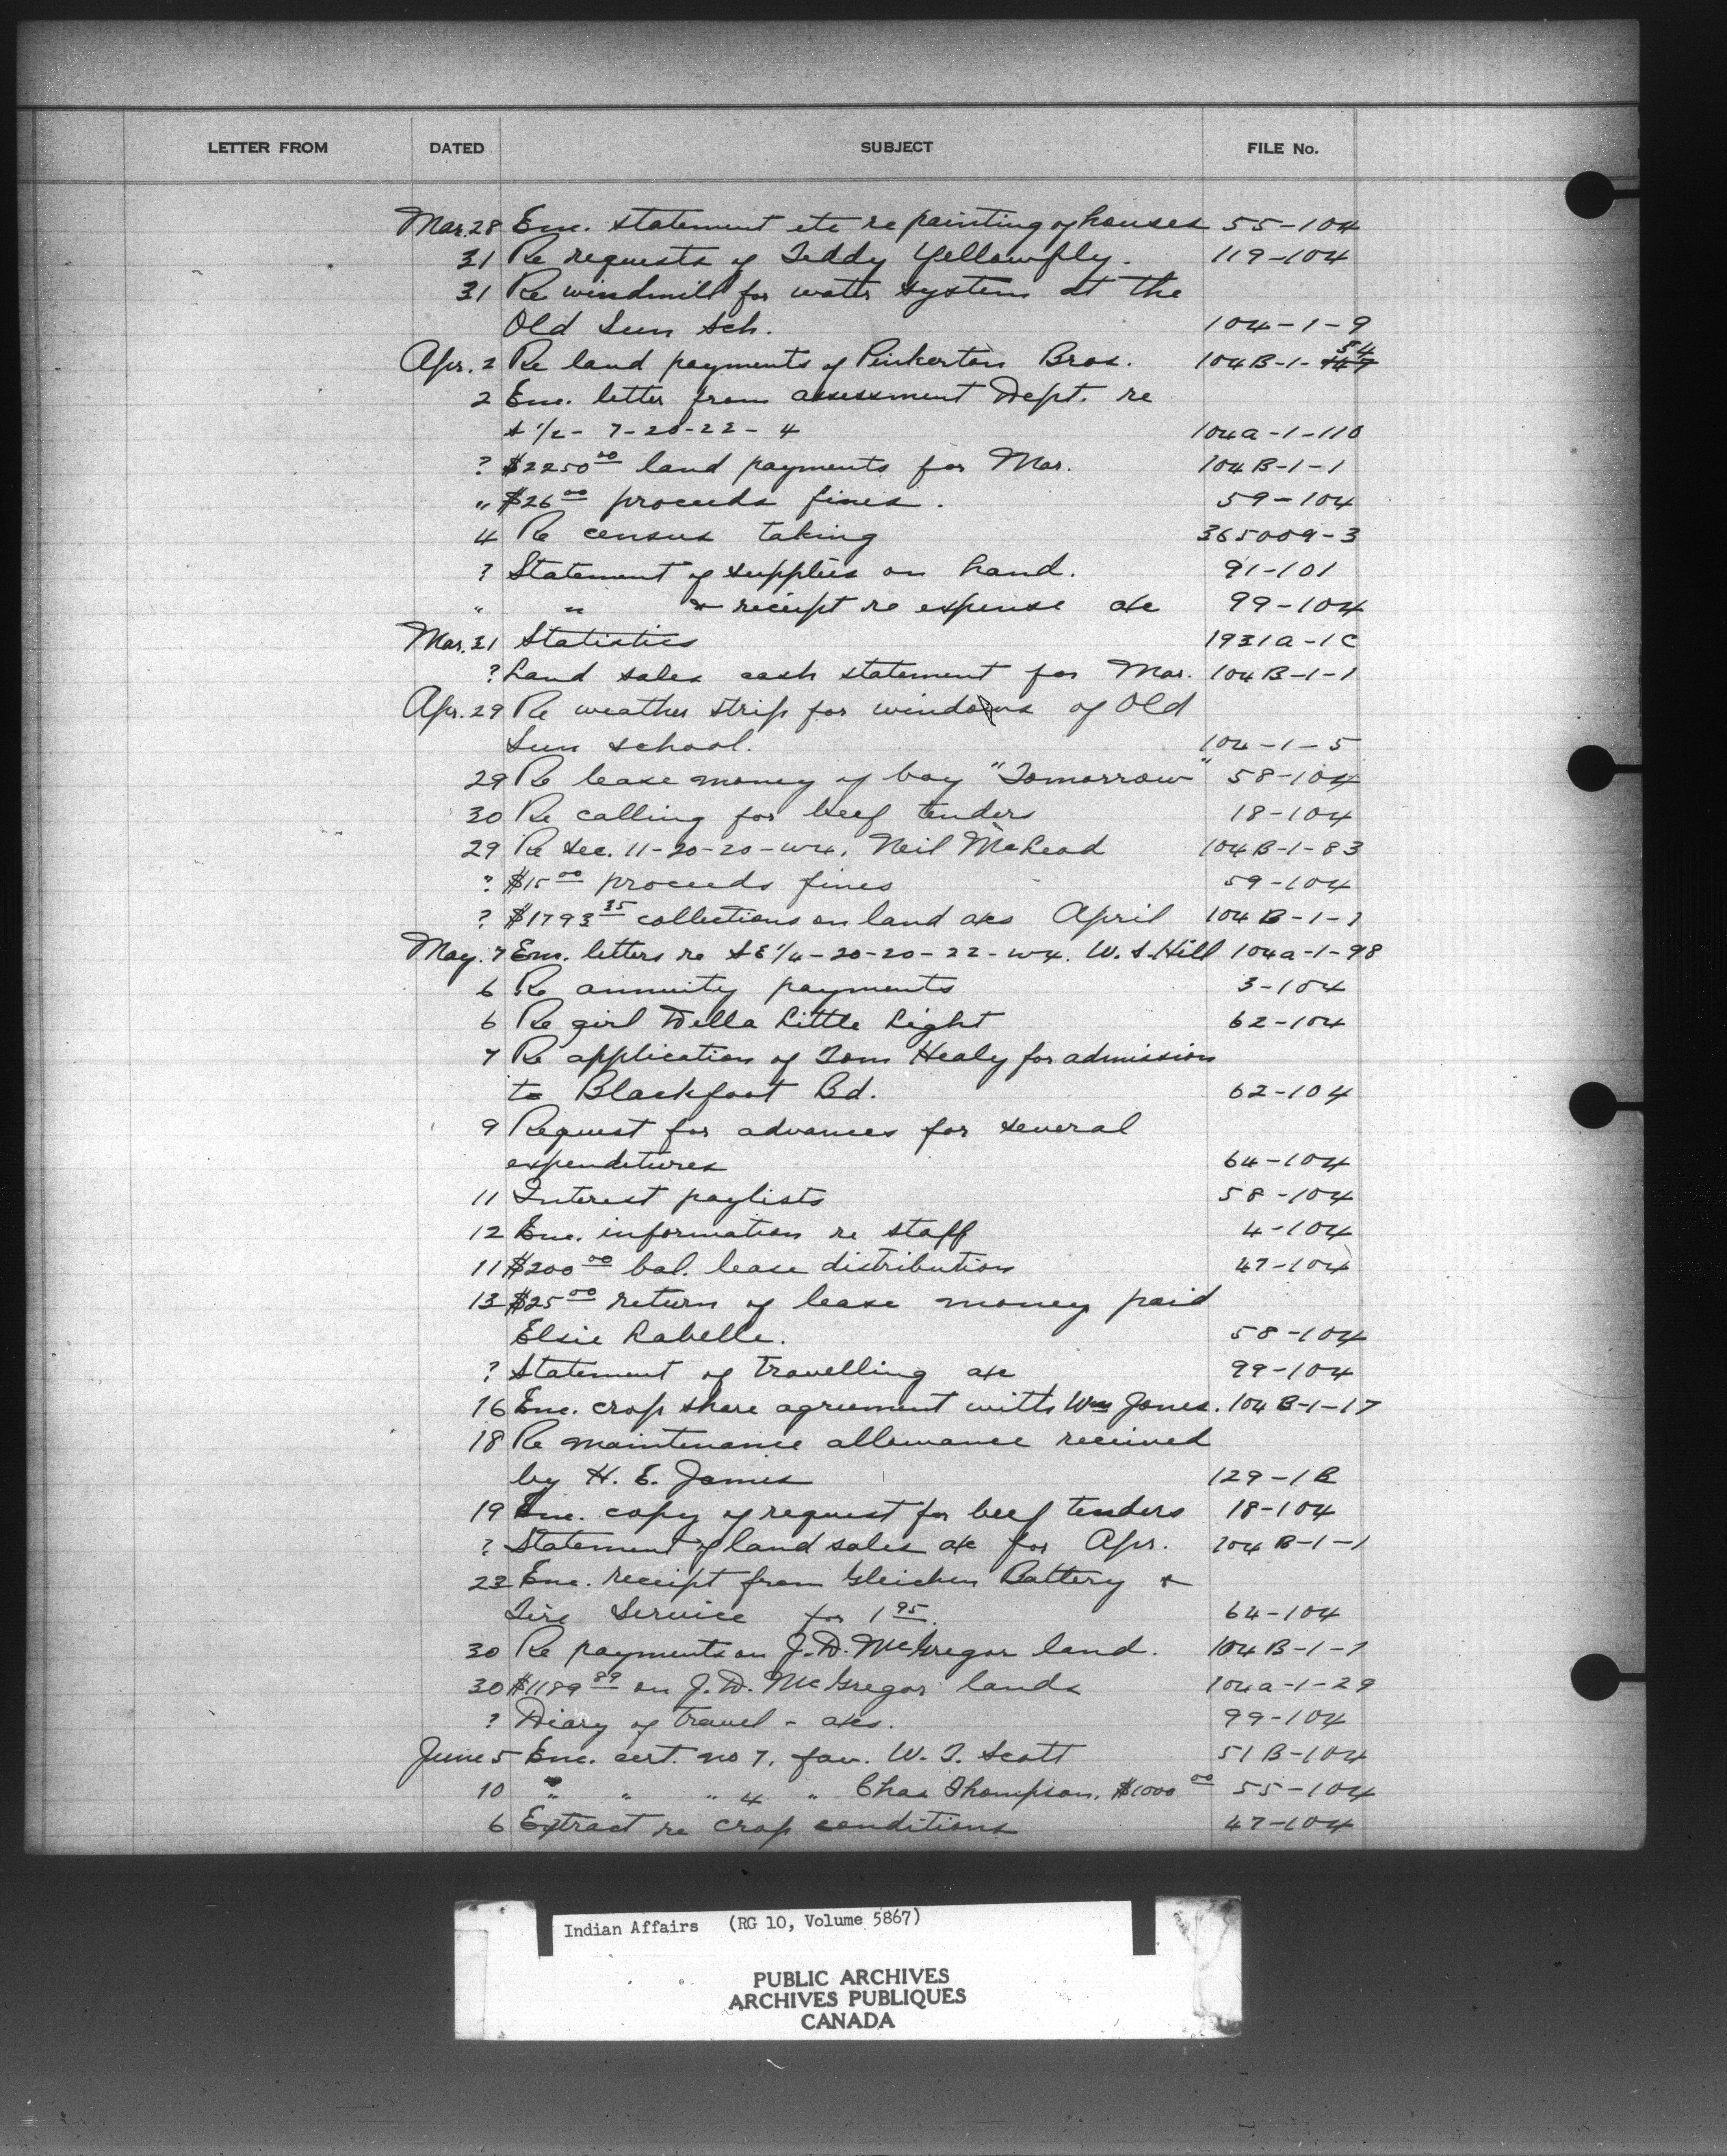 LETTER FROM DATED SUBJECT FILE No.
Mar. 28 Enc. statement etc re painting of houses 55-104
31 Re requests of Teddy Yellowfly. 119-104
31 Re windmill for water system at the
Old Sun Sch. 104-1-9
Apr. 2 Re land payments of Pinkerton Bros. 104B-1-54
2 Enc. letter from assessment Dept. re
S 1/2 - 7-20-22-4 104a-1-110
? $2250 00 land payments for Mar. 104B-1-1
" $26 00 proceeds fines. 59-104
4 Re census taking 365009-3
? Statement of supplies on hand. 91-101
" " & receipt re expense a/c 99-104
Mar. 31 Statistics 1931a-1C
? Land sales cash statement for Mar. 104B-1-1
Apr. 29 Re weather strip for windows of Old
Sun school. 104-1-5
29 Re lease money of boy "Tomorrow" 58-104
30 Re calling for beef tenders 18-104
29 Re Sec. 11-20-20-W4. Neil McLeod 104B-1-83
? $15 00 proceeds fines 59-104
? $1793 35 collections on land a/cs April 104B-1-1
May. 7 Enc. letters re SE 1/4-20-20-22-W4. W. S. Hill 104a-1-98
6 Re annuity payments 3-104
6 Re girl Della Little Light 62-104
7 Re application of Tom Healy for admission
to Blackfoot Bd. 62-104
9 Request for advances for several
expenditures 64-104
11 Interest paylists 58-104
12 Enc. information re staff 4-104
11 $200 00 bal. lease distribution 47-104
13 $25 00 return of lease money paid
Elsie Labelle. 58-104
? Statement of travelling a/c 99-104
16 Enc. crop share agreement with Wm Jones. 104B-1-17
18 Re maintenance allowance received
by H. E. James 129-1B
19 Enc. copy of request for beef tenders 18-104
? Statement of land sales a/c for Apr. 104B-1-1
22 Enc. receipt from Gleichen Battery &
Tire Service for 1 95. 64-104
30 Re payments on J. D. McGregor land. 104B-1-1
30 $1189 89 on J. D. McGregor lands 104a-1-29
? Diary of travel - a/cs. 99-104
June 5 Enc. cert. no 7. fav. W. T. Scott 51B-104
10 " " " 4 " Chas Thompson. $1000 00 55-104
6 Extract re crop conditions 47-104
Indian Affairs (RG 10, Volume 5867)
PUBLIC ARCHIVES
ARCHIVES PUBLIQUES
CANADA